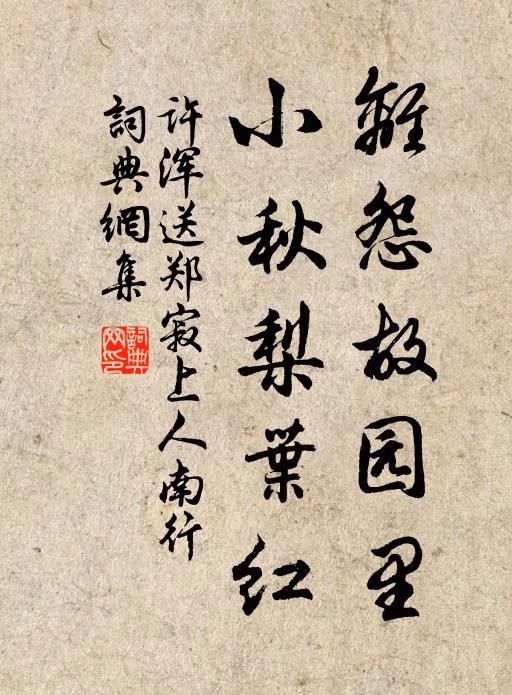 離怨故园里
小秋梨葉红
许浑送郑寂上人南行
詞典網集
詞典网印